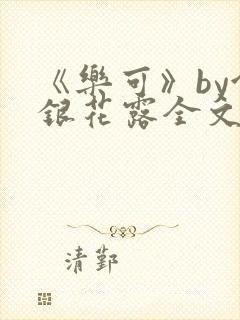 《樂可》by
銀花露全文
清鄞